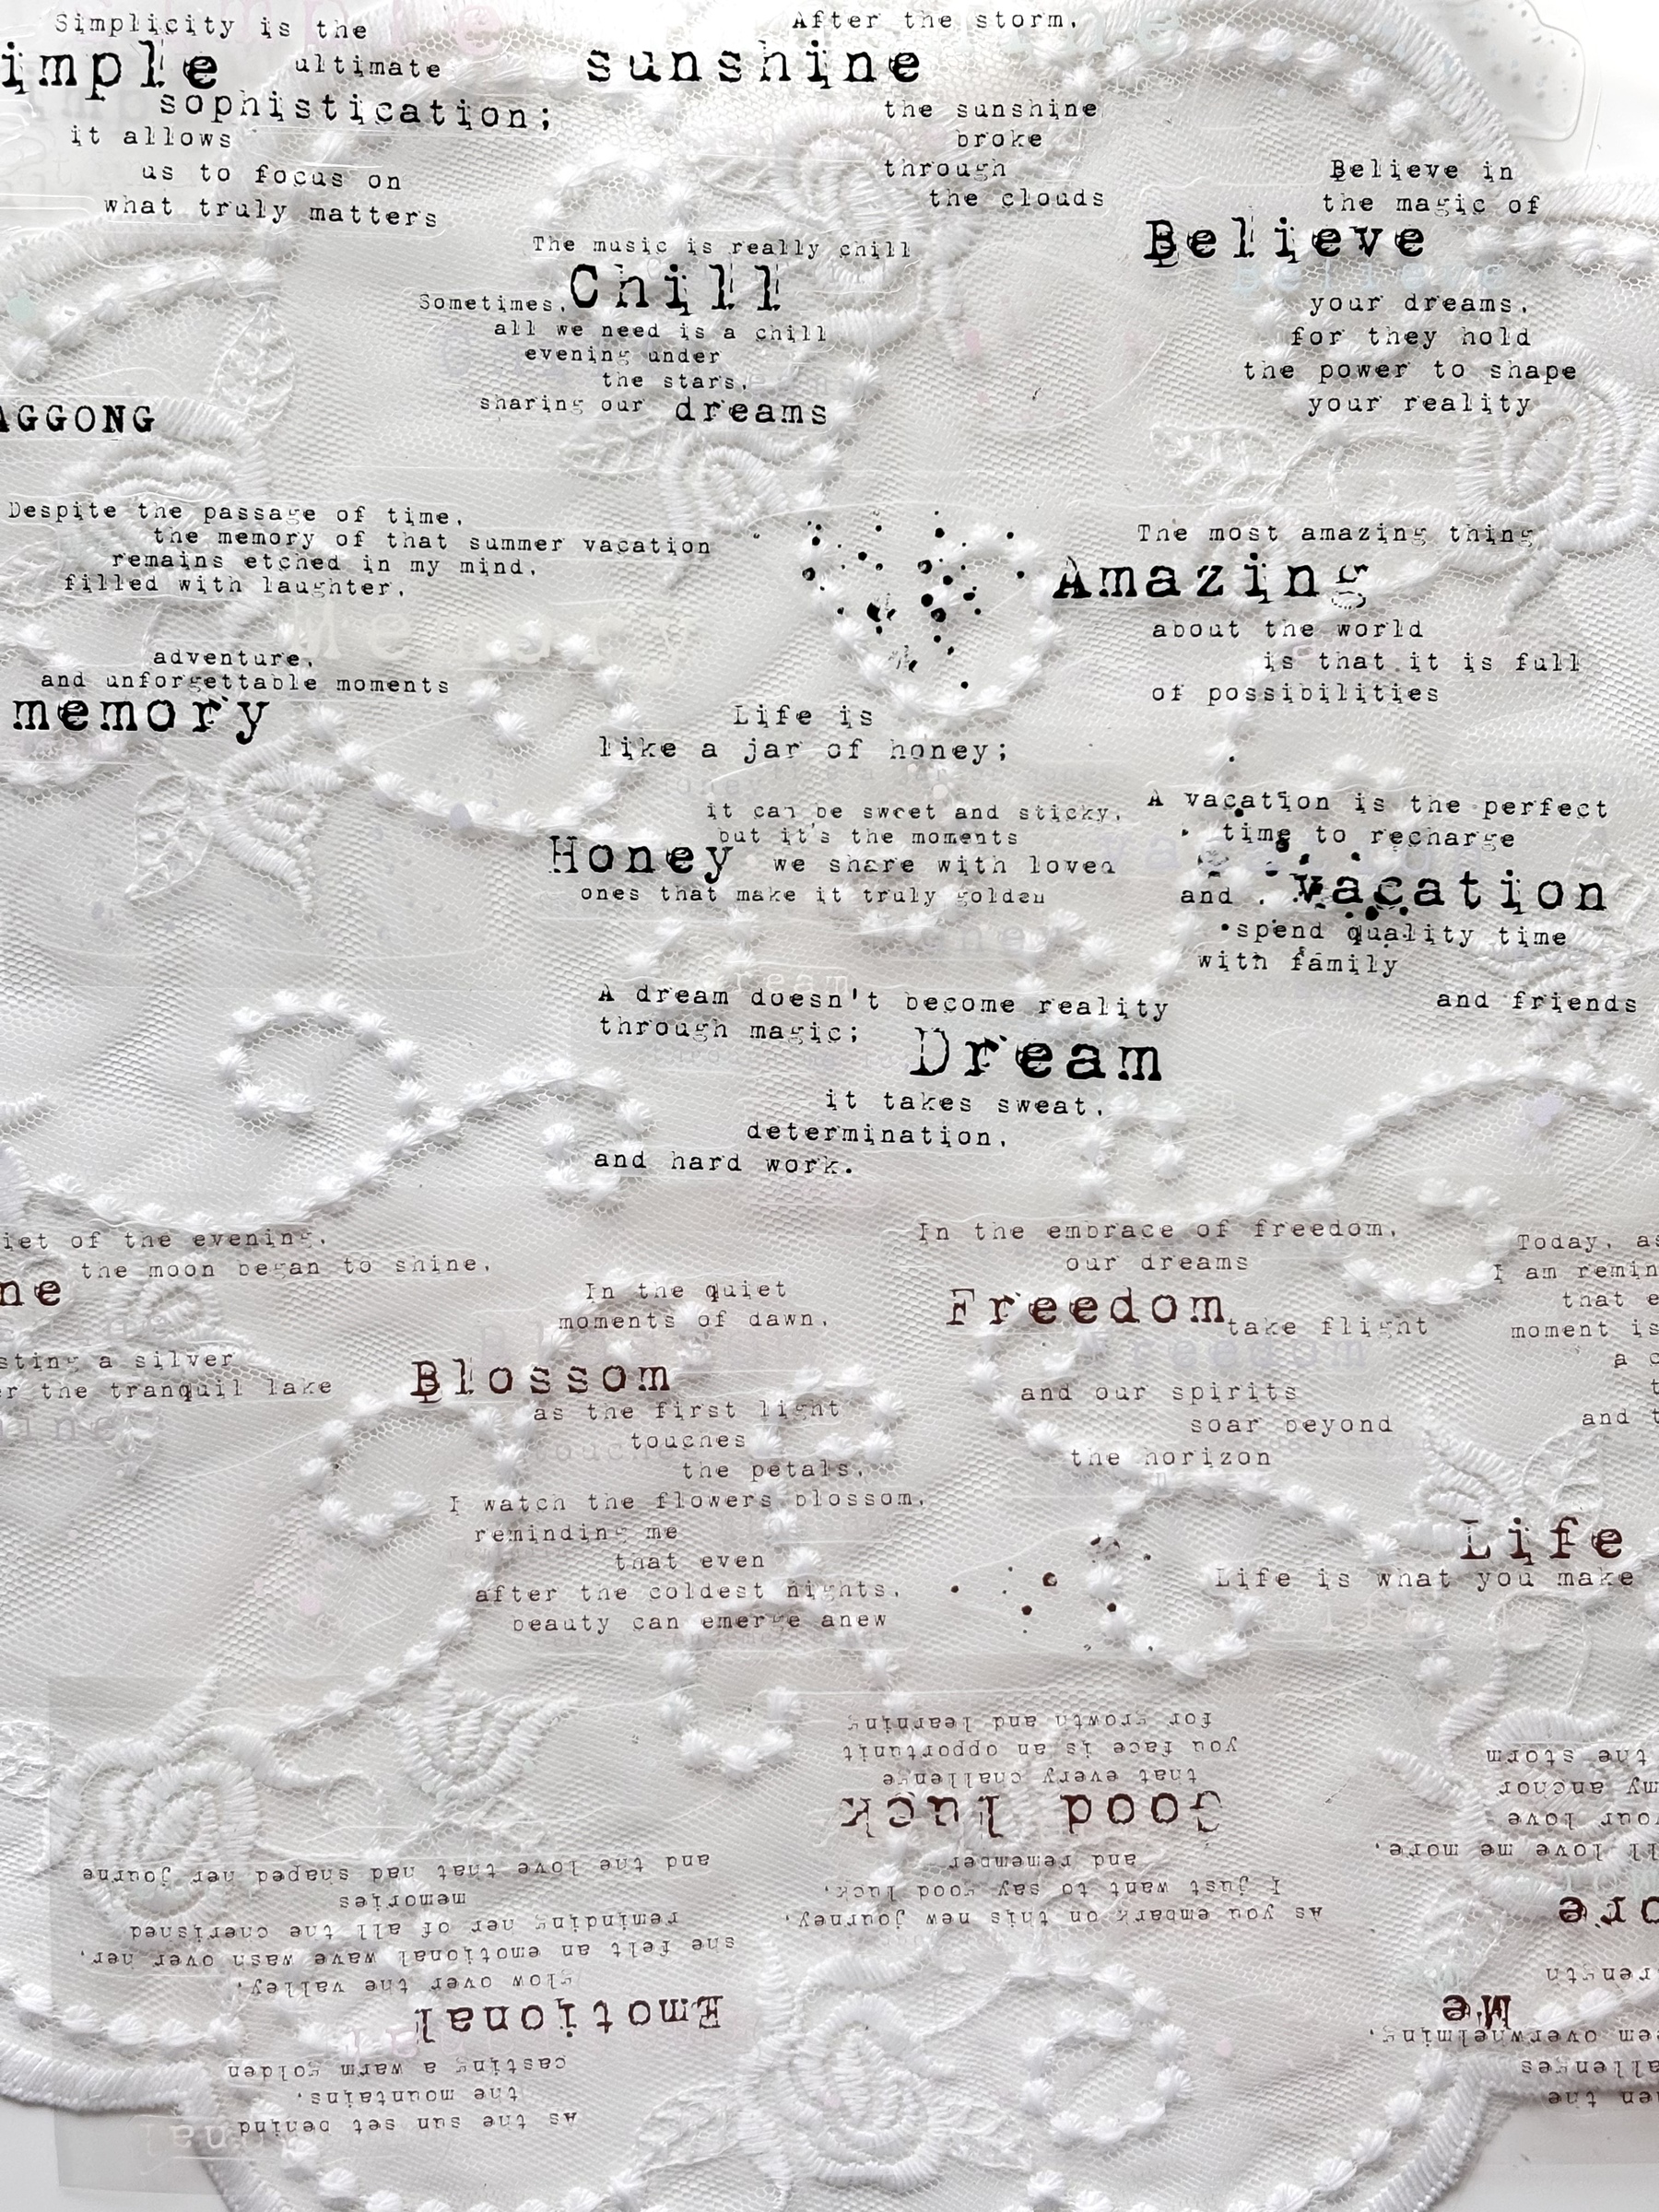 Simplicity is the
imple ultimate
sophistication;
it allows
us to focus on
what truly matters
After the storm,
sunshine
the sunshine
broke
through
the clouds
Believe in
the magic of
Believe
your dreams,
for they hold
the power to shape
your reality
The music is really chill
Chill
Sometimes,
all we need is a chill
evening under
the stars,
sharing our dreams
AGGONG
Despite the passage of time,
the memory of that summer vacation
remains etched in my mind,
filled with laughter,
adventure,
and unforgettable moments
memory
The most amazing thing
Amazing
about the world
is that it is full
of possibilities
Life is
like a jar of honey;
it can be sweet and sticky,
but it's the moments
Honey we share with loved
ones that make it truly golden
A vacation is the perfect
time to recharge
and vacation
spend quality time
with family
and friends
A dream doesn't become reality
through magic;
Dream
it takes sweat,
determination,
and hard work.
iet of the evening,
the moon began to shine,
ne
sting a silver
er the tranquil lake
In the quiet
moments of dawn,
Blossom
as the first light
touches
the petals,
I watch the flowers blossom,
reminding me
that even
after the coldest nights,
beauty can emerge anew
In the embrace of freedom,
our dreams
Freedom
take flight
and our spirits
soar beyond
the horizon
Today, as
I am remin
that e
moment is
a c
t
and t
Life
Life is what you make
As you embark on this new journey,
I just want to say good luck,
and remember
Good luck
that every challenge
you face is an opportunit
for growth and learning
As the sun set behind
the mountains,
casting a warm golden
Emotional
glow over the valley,
she felt an emotional wave wash over her,
reminding her of all the cherished
memories
and the love that had shaped her journe
hen the
allenges
eem overwhelming,
Me
rength
ore
ll love me more,
your love
my anchor
the storm